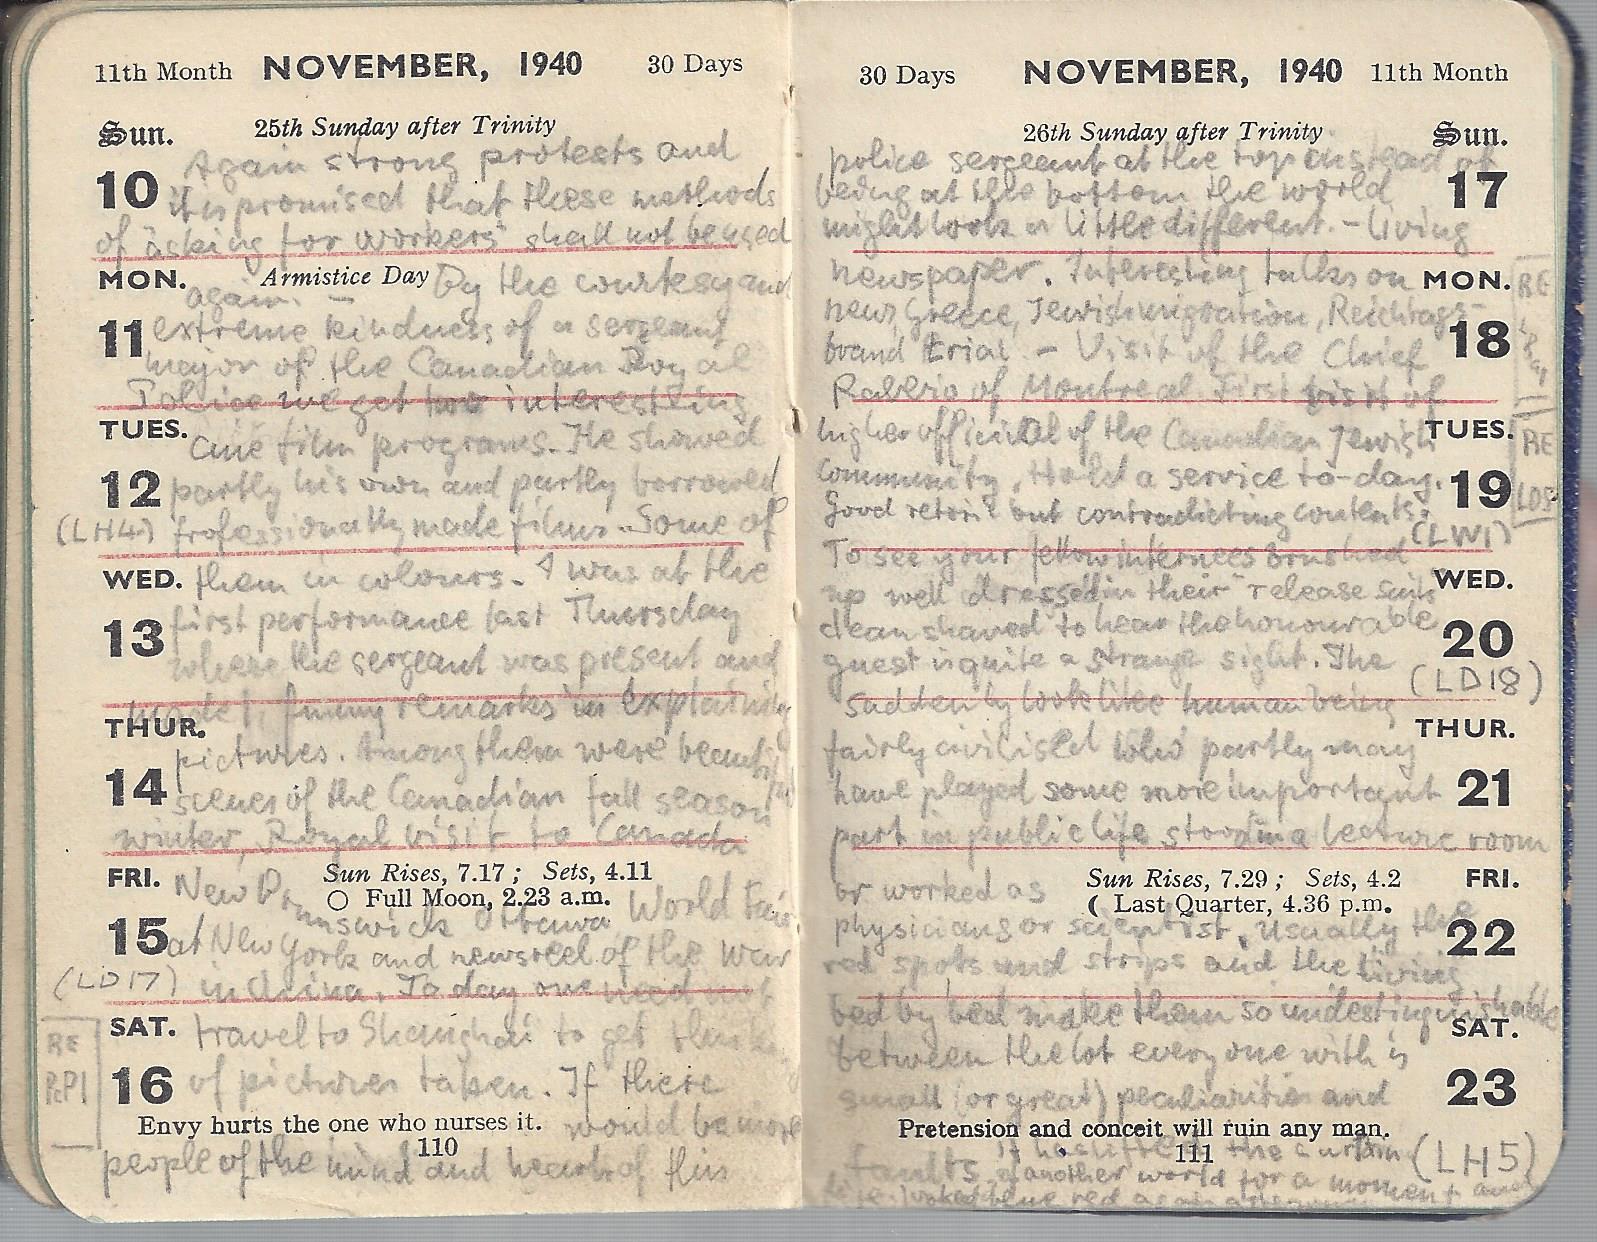 11th Month NOVEMBER, 1940 30 Days
Sun. 25th Sunday after Trinity
Again strong protests and
10 it is promised that these methods
of "asking for workers" shall not be used
MON. Armistice Day By the courtesy and
again. —
11 extreme kindness of a sergeant
major of the Canadian Royal
Police we get two interesting
TUES. cine film programs. He showed
12 partly his own and partly borrowed
(LH4) professionally made films. Some of
WED. them in colours. I was at the
13 first performance last Thursday
where the sergeant was present and
made funny remarks in explaining
THUR.
pictures. Among them were beautiful
14 scenes of the Canadian fall season
winter, Royal visit to Canada
FRI. Sun Rises, 7.17; Sets, 4.11
○ Full Moon, 2.23 a.m.
New Brunswick Ottawa World Fair
15 at New York and newsreel of the war
(LD17) in China. To day one need not
SAT. travel to Shanghai to get
RE
16 of pictures taken. If there
Envy hurts the one who nurses it. would be more
110
people of the mind and heart of this
30 Days NOVEMBER, 1940 11th Month
26th Sunday after Trinity Sun.
police sergeant at the top instead of
being at the bottom the world 17
might look a little different. – Living
newspaper. Interesting talks on MON.
RE
news, Greece, Jewish migration, Reichtags-
brand trial. – Visit of the Chief 18
Rabbi of Montreal First visit of
higher official of the Canadian Jewish TUES.
RE
community, Hold a service to-day. 19
Good but contradicting contents.
(LW1)
To see your fellow internees brushed
up well dressed in their "release suits" WED.
clean shaved to hear the honourable 20
guest is quite a strange sight. The
(LD18)
suddenly look like human being
fairly civilised who partly may THUR.
have played some more important 21
part in public life stood in a lecture room
or worked as Sun Rises, 7.29; Sets, 4.2 FRI.
( Last Quarter, 4.36 p.m.
physicians or scientist. Usually the 22
red spots and strips and the living
bed by bed make them so undestinguishable
SAT.
between the lot every one with is
small (or great) peculiarities and 23
Pretension and conceit will ruin any man.
111
faults. the curtain (LH5)
of another world for a moment and